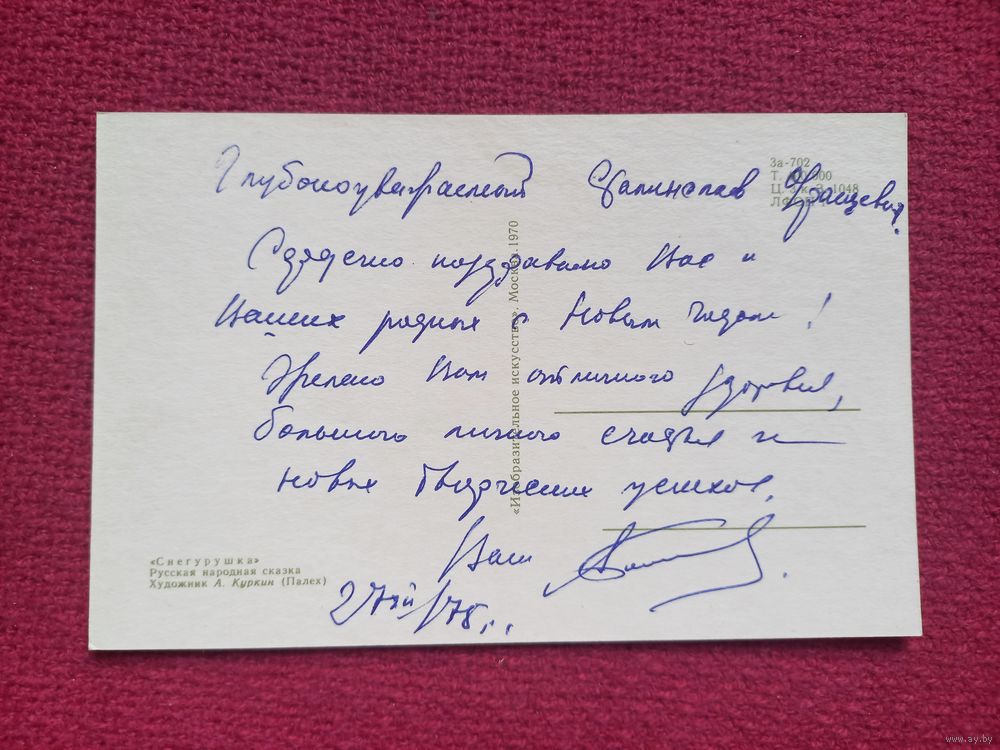 Глубокоуважаемый Станислав
Сердечно поздравляю Вас и
Ваших родных с Новым годом!
Желаю Вам отличного здоровья,
большого личного счастья и
новых творческих успехов.
Ваш
За-702
«Изобразительное искусство». Москва. 1970
«Снегурушка»
Русская народная сказка
Художник А. Куркин (Палех)
www.ay.by